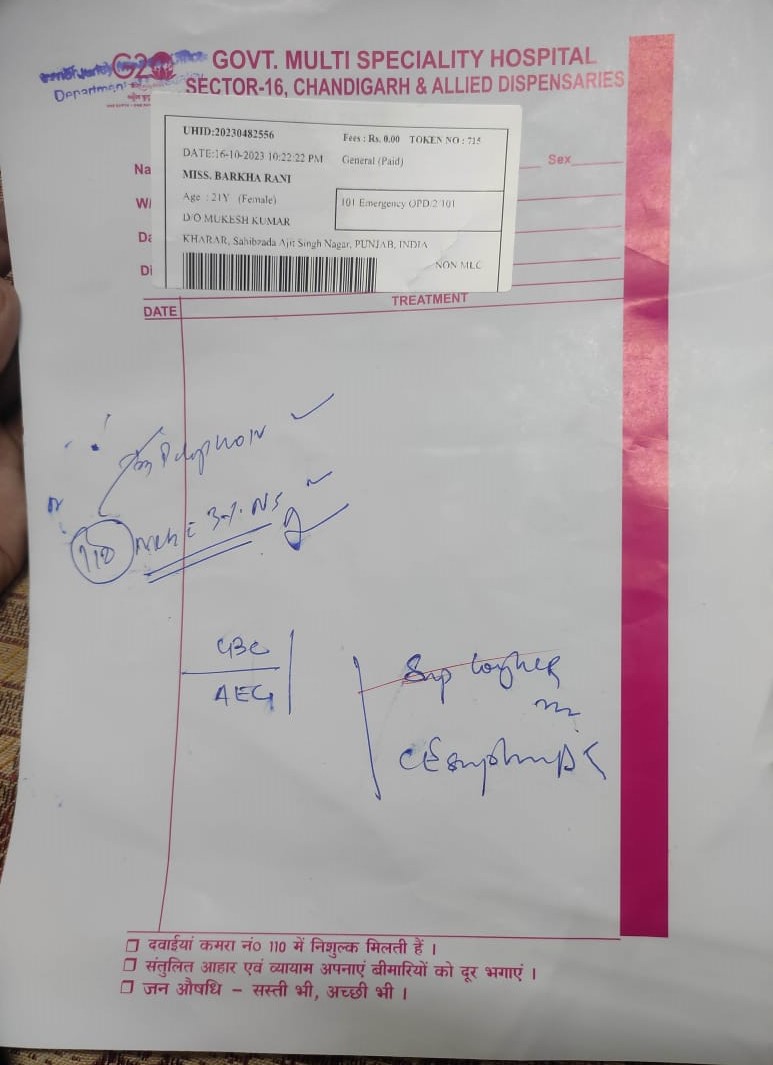 G20
GOVT. MULTI SPECIALITY HOSPITAL
Department
SECTOR-16, CHANDIGARH & ALLIED DISPENSARIES
UHID:20230482556
Fees : Rs. 0.00 TOKEN NO : 715
DATE:16-10-2023 10:22:22 PM
General (Paid)
Sex
Na
MISS. BARKHA RANI
Age : 21Y (Female)
101 Emergency OPD/2 101
W/
D/O MUKESH KUMAR
Da
KHARAR, Sahibzada Ajit Singh Nagar, PUNJAB, INDIA
Di
NON MLC
TREATMENT
DATE
3% NS
CBC
AEC
Syp
दवाईयां कमरा नं० 110 में निशुल्क मिलती हैं ।
संतुलित आहार एवं व्यायाम अपनाएं बीमारियों को दूर भगाएं ।
जन औषधि – सस्ती भी, अच्छी भी ।